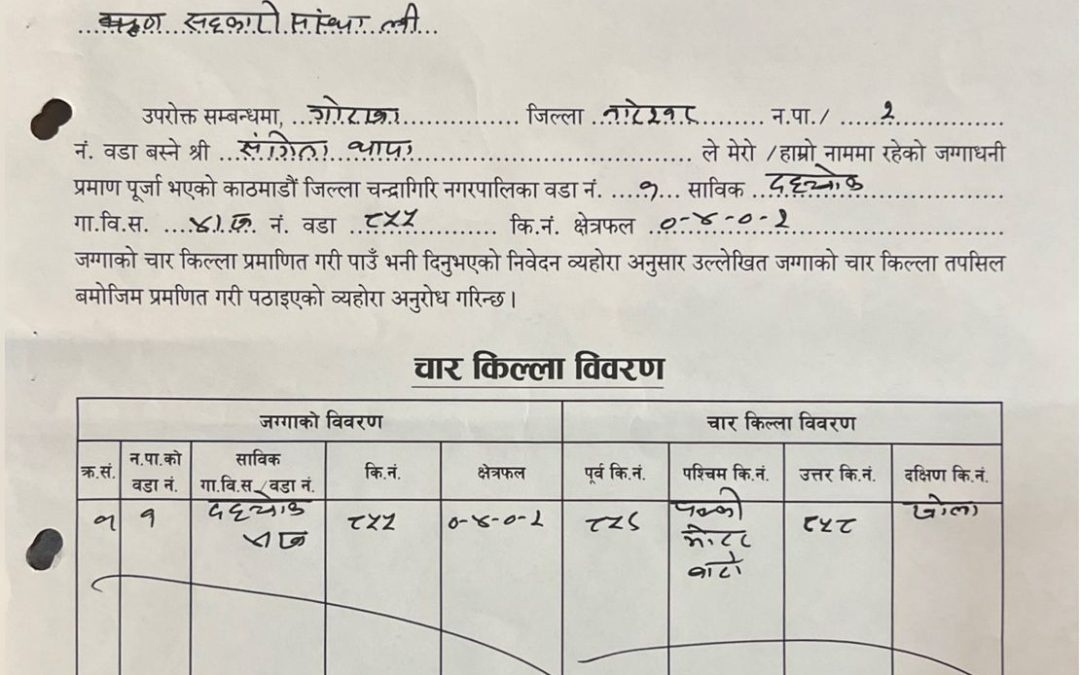 सहकारी संस्था ली
उपरोक्त सम्बन्धमा, गोरखा जिल्ला न.पा./ २
नं. वडा बस्ने श्री संगिता थापा ले मेरो /हाम्रो नाममा रहेको जग्गाधनी
प्रमाण पूर्जा भएको काठमाडौं जिल्ला चन्द्रागिरि नगरपालिका वडा नं. १ साविक दहचोक
गा.वि.स. नं. वडा ८५५ कि.नं. क्षेत्रफल ०-४-०-२
जग्गाको चार किल्ला प्रमाणित गरी पाउँ भनी दिनुभएको निवेदन व्यहोरा अनुसार उल्लेखित जग्गाको चार किल्ला तपसिल
बमोजिम प्रमणित गरी पठाइएको व्यहोरा अनुरोध गरिन्छ।
चार किल्ला विवरण
जग्गाको विवरण चार किल्ला विवरण
क्र.सं. न.पा.को वडा नं. साविक गा.वि.स./वडा नं. कि.नं. क्षेत्रफल पूर्व कि.नं. पश्चिम कि.नं. उत्तर कि.नं. दक्षिण कि.नं.
१ १ दहचोक ८५५ ०-४-०-२ पक्की खोला
मोटर
बाटो